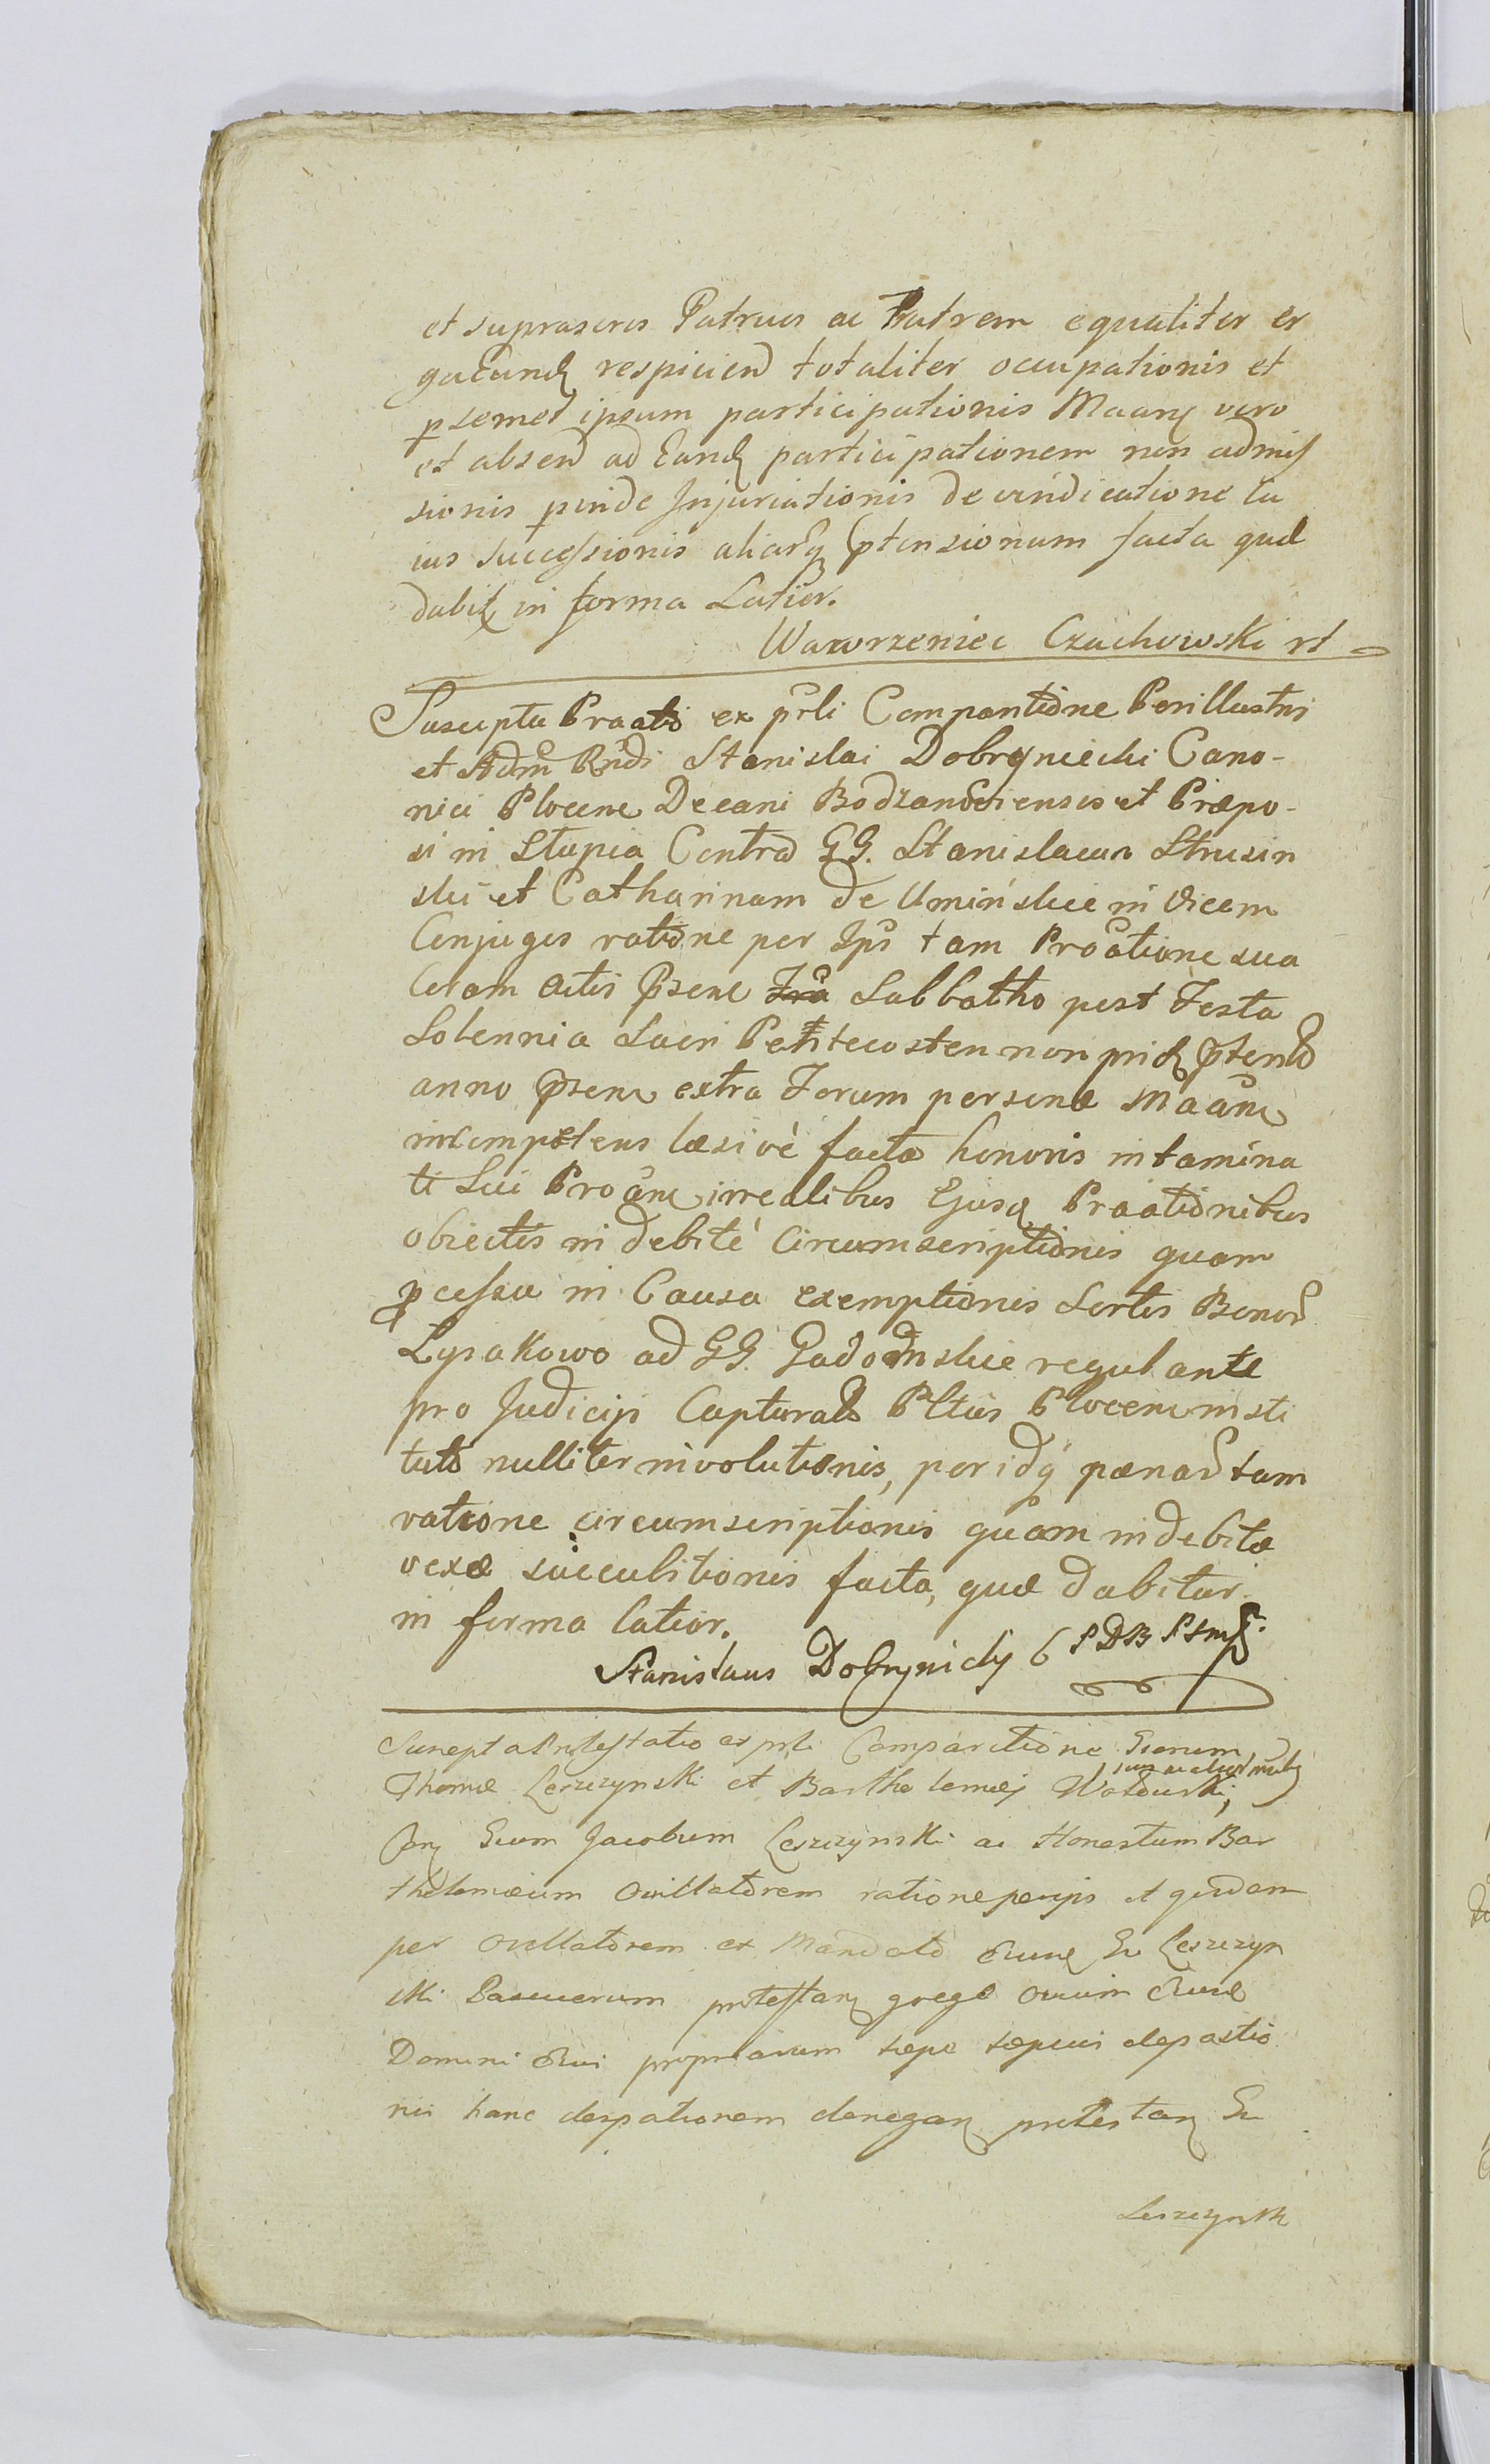 et suprascris Patruus ac Fratrem equaliter er
ga Eand respiciend totaliter occupationis et
p semet ipsum participationis Maan vero
et absend ad Eand participationem non admis
sionis pinde Injuriationis de vindicatione Eu
ius successionis aliarq ptensionum facta quæ
dabit in forma Latior.
Wawrzeniec Czachowski
Suscepta Praatio ex prli Comparitione Perillustris
et Adm Rndi Stanislai Dobrzyniecki Cano-
nici Plocen Decani Bodzanoviensis et Præpo-
si in Slupia Contra GG. Stanislaum Strusin
ski et Catharinam de Uminskie in vicem
Conjuges ratione per Ips tam Proatione sua
Coram Actis Psen Sabbatho post Festa
Solennia Sacri Pentecosten non prid ptento
anno Psen extra Forum personæ Maan
incompetens læsivè facta honoris intamina
ti Sui Proan irrealibus Ejusq Praationibus
obiectis indebitè Circumscriptionis quam
pcessu in Causa exemptionis Sortis Bonor
Lysakowo ad GG. Gadomskie regulante
pro Judicijs Captural Pltus Plocen insti
tuto nulliter involutionis, peridq pænar tam
ratione circumscriptionis quam indebitæ
vexæ succubitionis facta, quæ dabitur
in forma latior.
Stanislaus Dobrynicky C P D B P Smp
Suscepta Protestatio ex prli Comparitione Gnorum
Thomæ Leszczynski et Bartholemæj Woldurski,
Con Gnum Jacobum Leszczynski ac Honestum Bar
tholemæum Ovillatorem ratione per ips et quidem
per Ovillatorem ex Mandato Gn Leszczyn
ski Pascuorum protestan grege ovium
Domini Sui propriarum sæpe sæpius depastio
nis hanc depastionem denegan protestan Gn
Leszczynsk